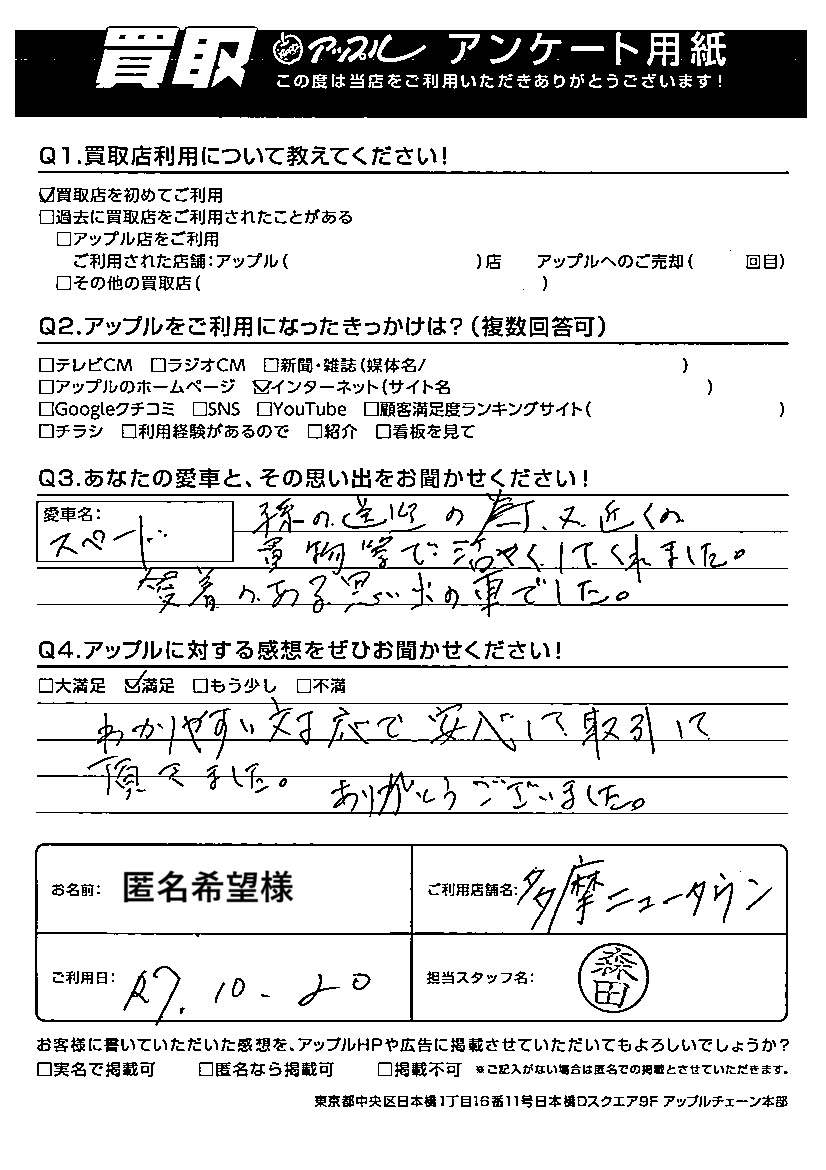 買取 アップル アンケート用紙
この度は当店をご利用いただきありがとうございます!
Q1.買取店利用について教えてください!
☑買取店を初めてご利用
□過去に買取店をご利用されたことがある
□アップル店をご利用
ご利用された店舗:アップル( )店 アップルへのご売却( 回目)
□その他の買取店( )
Q2.アップルをご利用になったきっかけは?(複数回答可)
□テレビCM □ラジオCM □新聞・雑誌(媒体名/ )
□アップルのホームページ ☑インターネット(サイト名 )
□Googleクチコミ □SNS □YouTube □顧客満足度ランキングサイト( )
□チラシ □利用経験があるので □紹介 □看板を見て
Q3.あなたの愛車と、その思い出をお聞かせください!
愛車名:
スペード
孫の送迎の為、又近くの
買物等で活やくしてくれました。
愛着のある思い出の車でした。
Q4.アップルに対する感想をぜひお聞かせください!
□大満足 ☑満足 □もう少し □不満
わかりやすい対応で安心して取引して
頂きました。 ありがとうございました。
お名前: 匿名希望様 ご利用店舗名: 多摩ニュータウン
ご利用日: R7.10-20 担当スタッフ名: 森田
お客様に書いていただいた感想を、アップルHPや広告に掲載させていただいてもよろしいでしょうか?
□実名で掲載可 □匿名なら掲載可 □掲載不可 ※ご記入がない場合は匿名での掲載とさせていただきます。
東京都中央区日本橋1丁目16番11号日本橋Dスクエア9F アップルチェーン本部